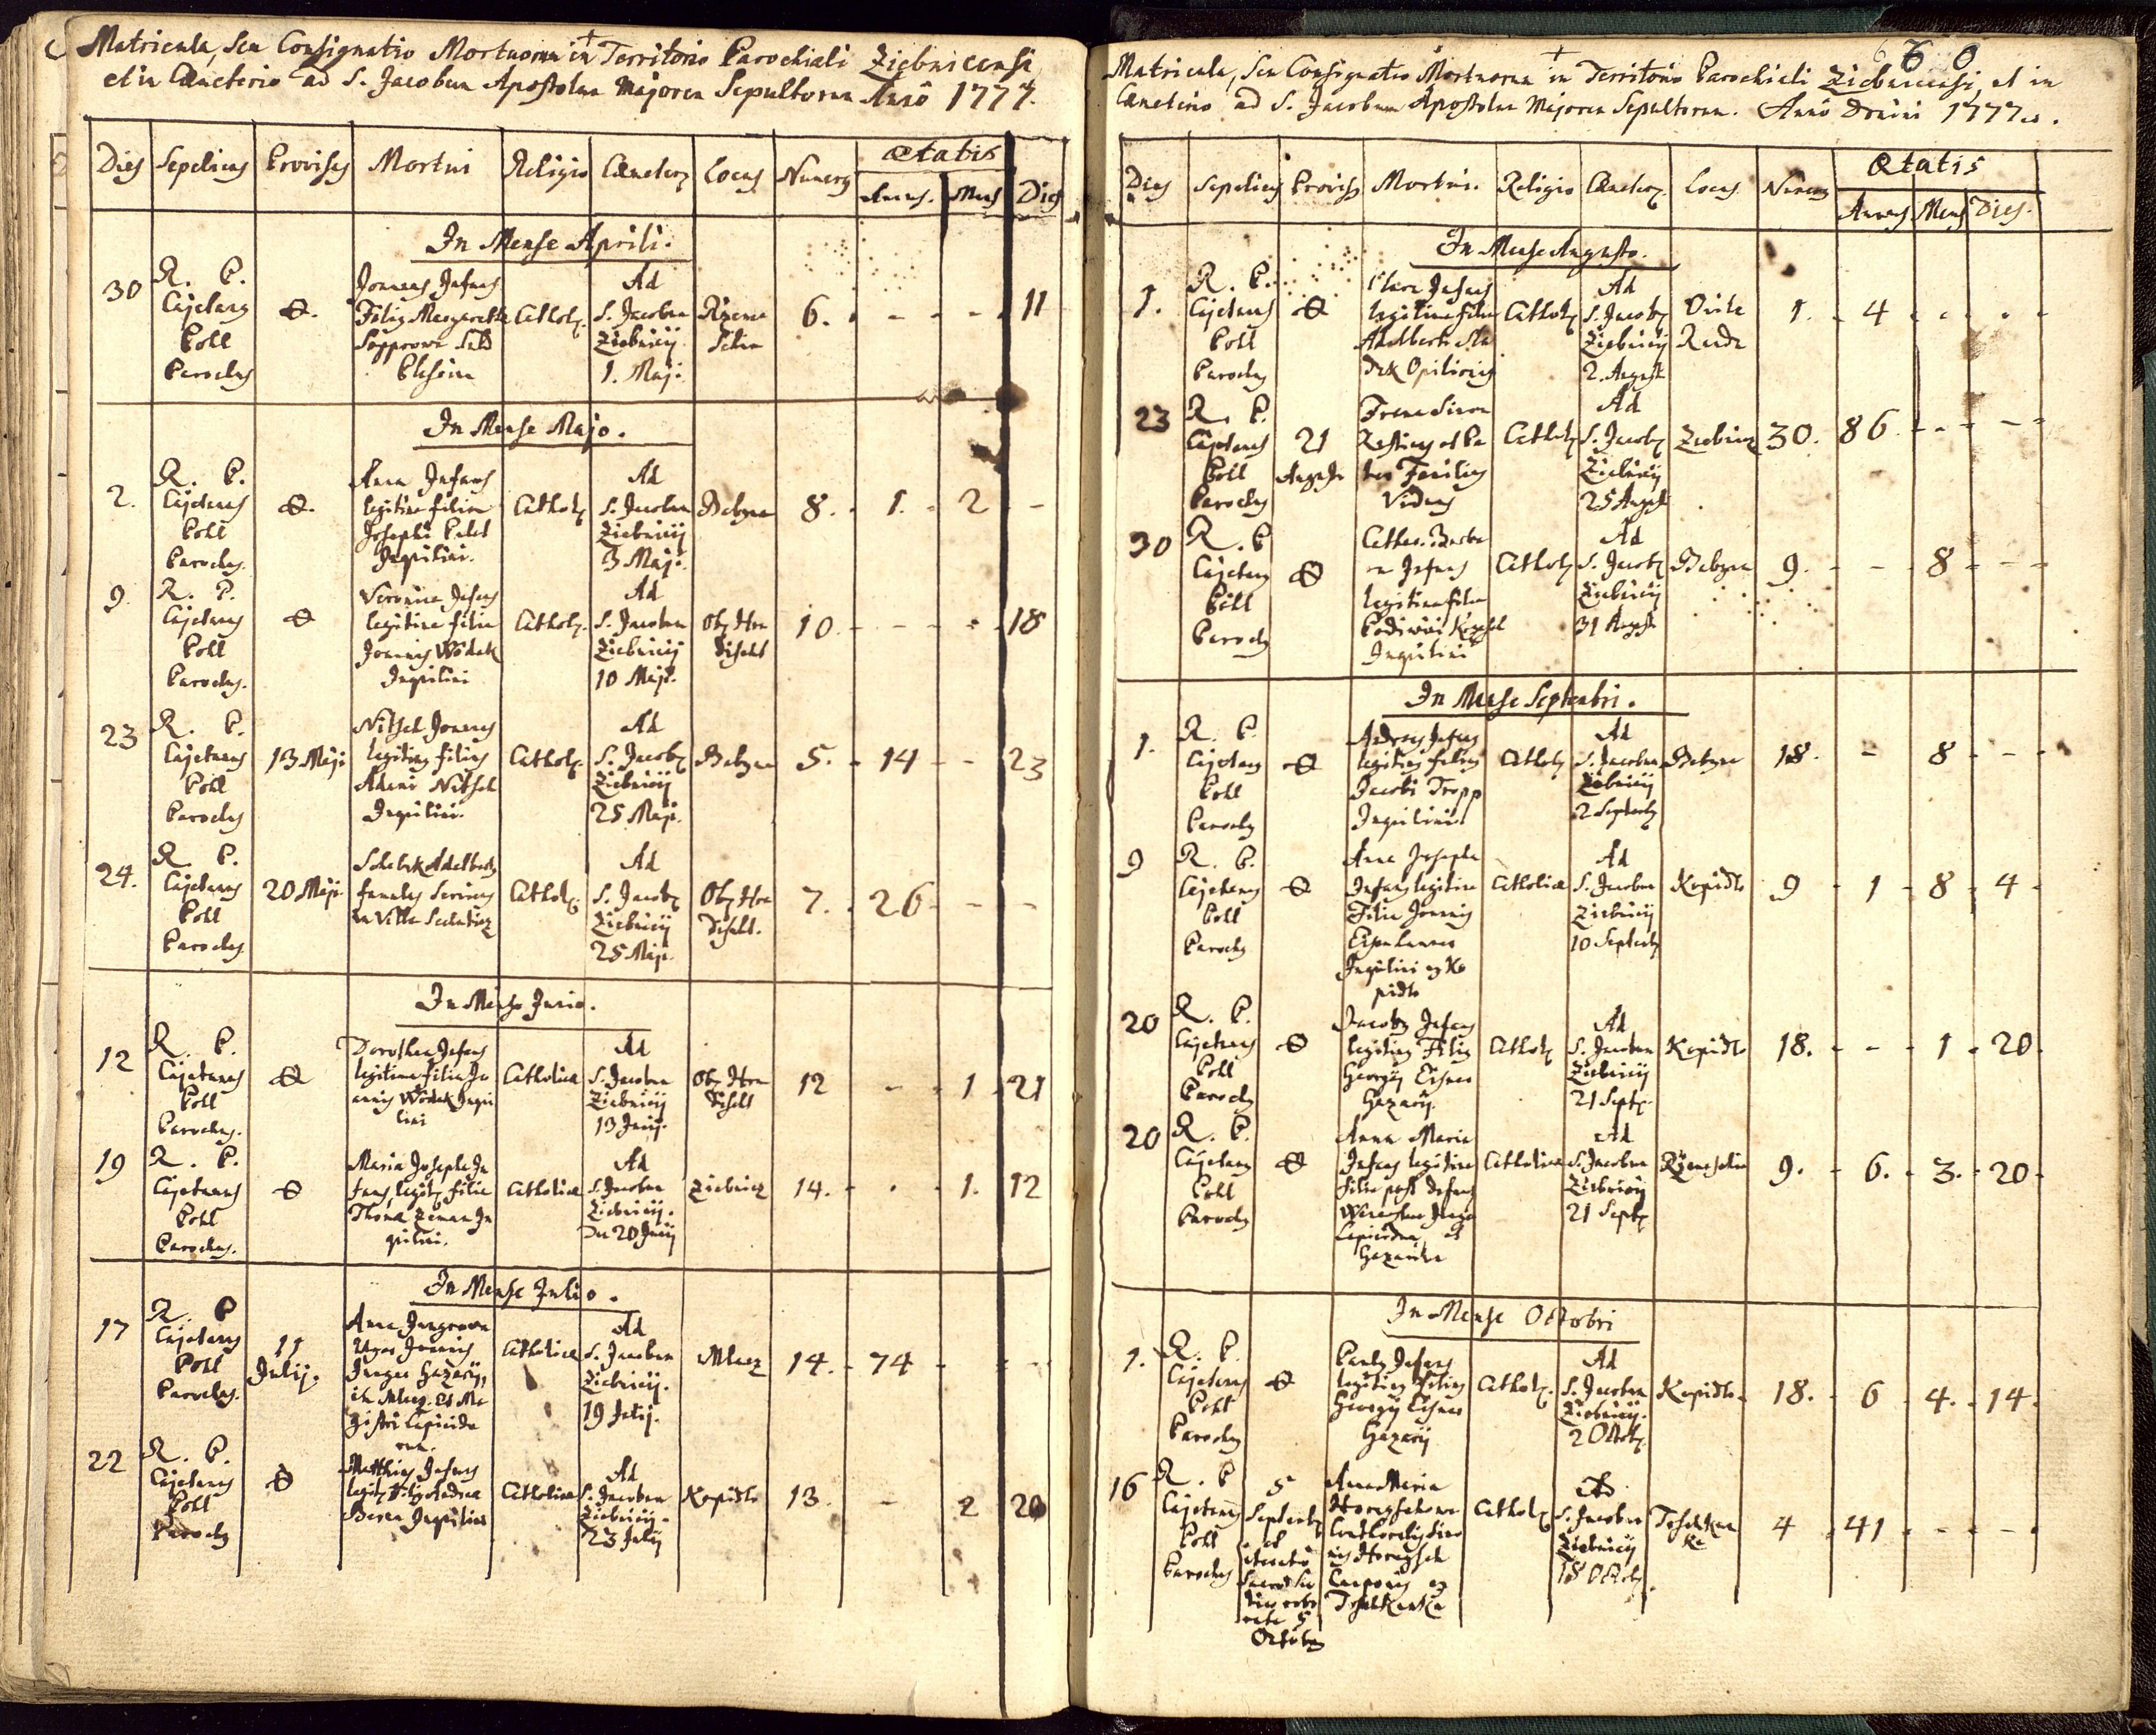 Matricula, seu Consignatio Mortuorum in Territorio Parochiali Ziebnicensi
et in Cœmeterio ad S. Jacobum Apostolum Majorem Sepultorum Anno 1777.
Dies Sepeliens Provisus Mortui Religio Cœmeter Locus Numerus Ætatis
Annus. Mens Dies
In Mense Aprili.
30 R. P. Cajetanus Pohl Parochus
Joannes Infans Filius Margaretha
Cathol.
Ad S. Jacobum Ziebnicij 1. Maj.
6. 11
In Mense Majo.
2. R. P. Cajetanus Pohl Parochus
Anna Infans legitima filia Josephi Inquilini.
Cathol
Ad S. Jacobum Ziebnicij 3 Maj.
Bebyna 8. 1. 2 -
9. R. P. Cajetanus Pohl Parochus.
Veronica Infans legitima filia Joannis Wodak Inquilini
Cathol.
Ad S. Jacobum Ziebnicij 10 Maji.
10. 18
23 R. P. Cajetanus Pohl Parochus
13 Maji
Nitsch Joannes legitimus filius Adami Nitsch Inquilini.
Cathol
Ad S. Jacob Ziebnicij 25 Maji.
Bebyna 5. 14 - 23
24. R. P. Cajetanus Pohl Parochus
20 Maji
Adelbertus famulus Serviens in Villa
Cathol.
Ad S. Jacob Ziebnicij 25 Maji.
7. 26 - -
In Mense Junio.
12 R. P. Cajetanus Pohl Parochus.
Dorothea Infans legitima filia Joannis Wodak Inquilini
Catholica
Ad S. Jacobum Ziebnicij 13 Junij.
12 - 1 21
19 R. P. Cajetanus Pohl Parochus.
Maria Josepha Infans legit. filia Thoma Zeman Inquilini.
Catholica
Ad S. Jacobum Ziebnicij. Die 20 Junij
Ziebnicz 14. 1. 12
In Mense Julio.
17 R. P. Cajetanus Pohl Parochus.
11 Julij.
Anna Jungrowa Uxor Joannis Junger Gazarij, in Mlecz. et Magistri Lapicidarum.
Catholica
Ad S. Jacobum Ziebnicij. 19 Julij.
Mlecz 14. 74 - -
22 R. P. Cajetanus Pohl Parochus
Matthias Infans legit. Filius Andrea Beran Inquilini
Catholica
Ad S. Jacobum Ziebnicij. 23 July
Kopidlo 13. - 2 20
660
Matricula, seu Consignatio Mortuorum in Territorio Parochiali Ziebnicensi, et in
Cœmeterio ad S. Jacobum Apostolum Majorem Sepultorum. Anno Domini 1777.
Dies Sepeliens Provis Mortui. Religio Cœmeter. Locus Numerus Ætatis
Annus Mens Dies.
In Mense Augusto.
1. R. P. Cajetanus Pohl Parochus
Clara Infans legitima filia Adalberti Opilionis
Cathol
Ad S. Jacob Ziebnicij 2. August
Ovile 1. 4
23 R. P. Cajetanus Pohl Parochus
21 Augusti
Viduus
Cathol
Ad S. Jacob Ziebnicij 25 August
Ziebnicz 30. 86. - -
30 R. P. Cajetanus Pohl Paroch
Cathar. Barbora Infans legitima filia Inquilini
Cathol
Ad S. Jacob Ziebnicij 31 August
Bebyna 9. - 8 -
In Mense Septembri.
1. R. P. Cajetanus Pohl Paroch
Andreas Infans legitimus filius Jacobi Tropp Inquilini
Cathol
Ad S. Jacobum Ziebnicij 2 Septemb
Bebyna 18. - 8 -
9 R. P. Cajetanus Pohl Paroch
Anna Josepha Infans legitima Filia Joannis Inquilini ex Kopidlo
Catholica
Ad S. Jacobum Ziebnicij 10 Septemb
Kopidlo 9 - 1 - 8 - 4 -
20 R. P. Cajetanus Pohl Paroch
Jacobus Infans legitimus Filius Georgij Eisner Gazarij.
Cathol
Ad S. Jacobum Ziebnicij 21 Sept.
Kopidlo 18. - - 1 - 20
20 R. P. Cajetanus Pohl Paroch
Anna Maria Infans legitima filia post defunct Lapicidam et Gazarium
Catholica
Ad S. Jacobum Ziebnicij 21 Sept
9. - 6. - 3. - 20 -
In Mense Octobri
1. R. P. Cajetanus Pohl Paroch
Paulus Infans legitimus filius Georgij Eisner Gazarij
Cathol.
Ad S. Jacobum Ziebnicij. 2 Octob.
Kopidlo 18. - 6 4. - 14
16 R. P. Cajetanus Pohl Parochus
5 Septemb et 5 Octobr
Anna Maria
Cathol
Ad S. Jacobum Ziebnicij 18 Octob
4 41 - -